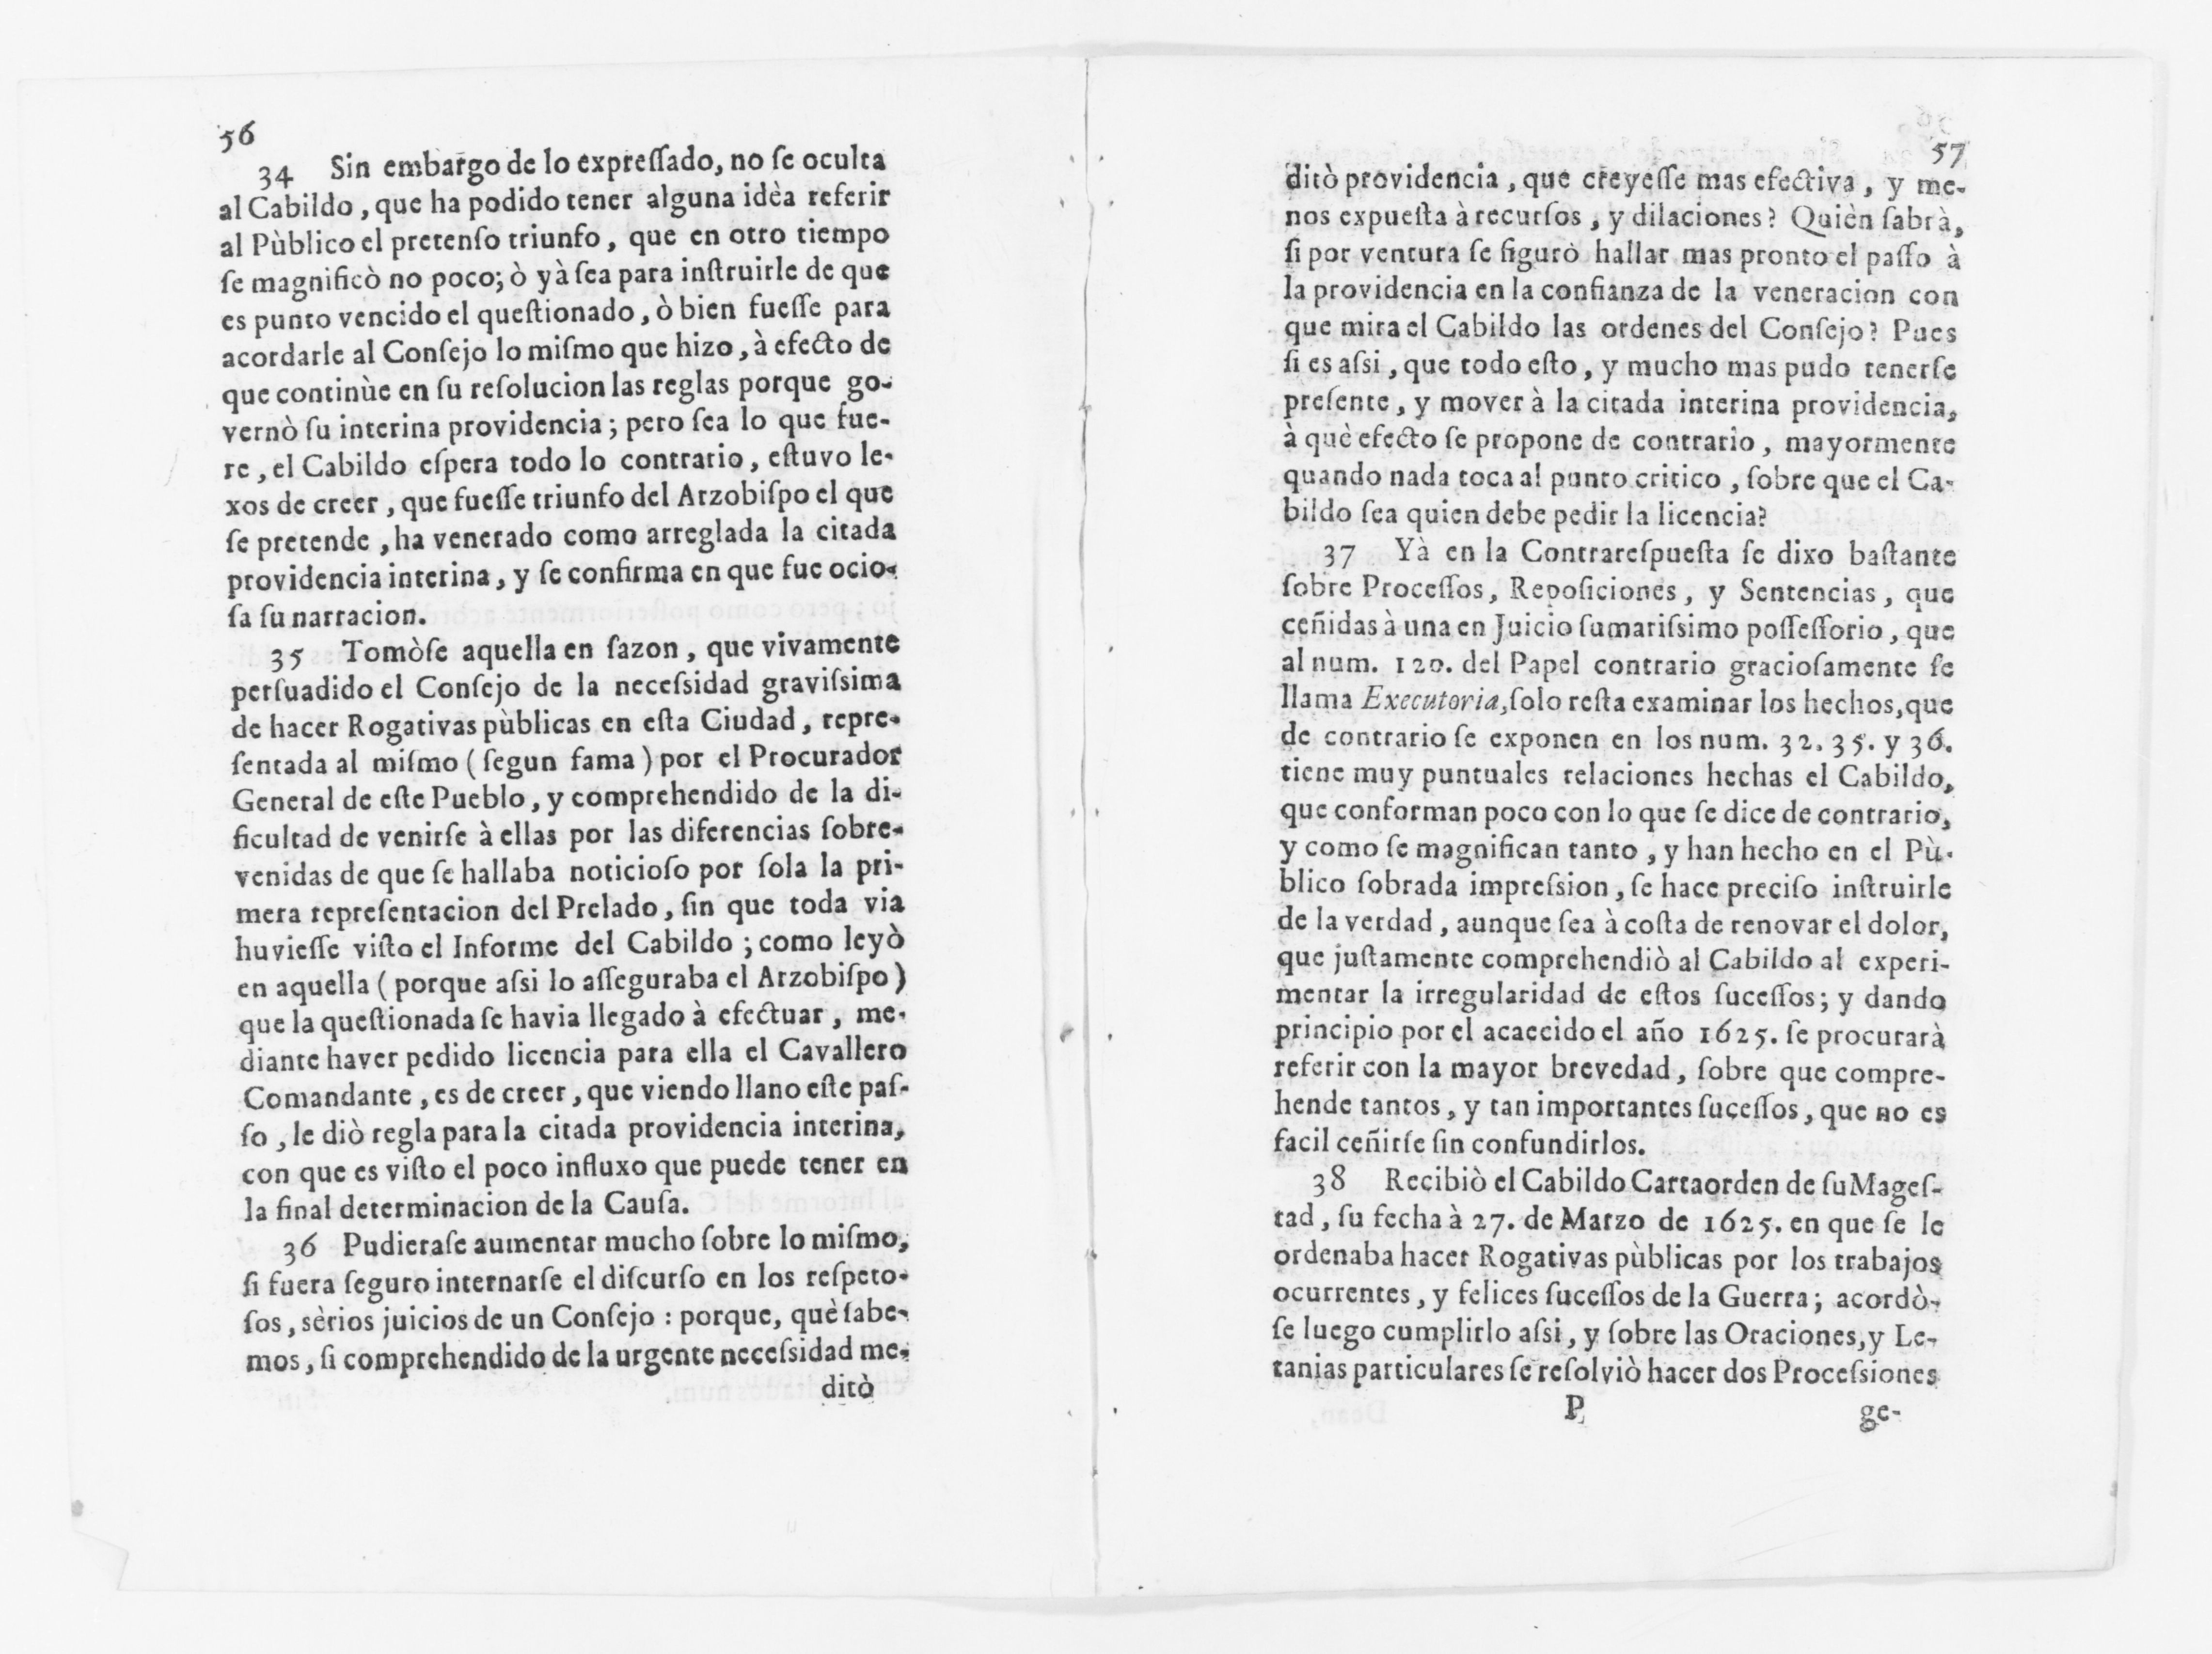 56
34 Sin embargo de lo expreſſado, no ſe oculta
al Cabildo, que ha podido tener alguna idèa referir
al Pùblico el pretenſo triunfo, que en otro tiempo
ſe magnificò no poco; ò yà ſea para inſtruirle de que
es punto vencido el queſtionado, ò bien fueſſe para
acordarle al Conſejo lo miſmo que hizo, à efecto de
que continùe en ſu reſolucion las reglas porque go-
vernò ſu interina providencia; pero ſea lo que fue-
re, el Cabildo eſpera todo lo contrario, eſtuvo le-
xos de creer, que fueſſe triunfo del Arzobiſpo el que
ſe pretende, ha venerado como arreglada la citada
providencia interina, y ſe confirma en que fue ocio-
ſa ſu narracion.
35 Tomòſe aquella en ſazon, que vivamente
perſuadido el Conſejo de la neceſsidad graviſsima
de hacer Rogativas pùblicas en eſta Ciudad, repre-
ſentada al miſmo (ſegun fama) por el Procurador
General de eſte Pueblo, y comprehendido de la di-
ficultad de venirſe à ellas por las diferencias ſobre-
venidas de que ſe hallaba noticioſo por ſola la pri-
mera repreſentacion del Prelado, ſin que toda via
huvieſſe viſto el Informe del Cabildo; como leyò
en aquella (porque aſsi lo aſſeguraba el Arzobiſpo)
que la queſtionada ſe havia llegado à efectuar, me-
diante haver pedido licencia para ella el Cavallero
Comandante, es de creer, que viendo llano eſte paſ-
ſo, le diò regla para la citada providencia interina,
con que es viſto el poco influxo que puede tener en
la final determinacion de la Cauſa.
36 Pudieraſe aumentar mucho ſobre lo miſmo,
ſi fuera ſeguro internarſe el diſcurſo en los reſpeto-
ſos, sèrios juicios de un Conſejo : porque, què ſabe-
mos, ſi comprehendido de la urgente neceſsidad me-
ditò
57
ditò providencia, que creyeſſe mas efectiva, y me-
nos expueſta à recurſos, y dilaciones? Quièn ſabrà,
ſi por ventura ſe figurò hallar mas pronto el paſſo à
la providencia en la confianza de la veneracion con
que mira el Cabildo las ordenes del Conſejo? Pues
ſi es aſsi, que todo eſto, y mucho mas pudo tenerſe
preſente, y mover à la citada interina providencia,
à què efecto ſe propone de contrario, mayormente
quando nada toca al punto critico, ſobre que el Ca-
bildo ſea quien debe pedir la licencia?
37 Yà en la Contrareſpueſta ſe dixo baſtante
ſobre Proceſſos, Repoſiciones, y Sentencias, que
ceñidas à una en Juicio ſumariſsimo poſſeſſorio, que
al num. 120. del Papel contrario gracioſamente ſe
llama Executoria, ſolo reſta examinar los hechos, que
de contrario ſe exponen en los num. 32. 35. y 36.
tiene muy puntuales relaciones hechas el Cabildo,
que conforman poco con lo que ſe dice de contrario,
y como ſe magnifican tanto, y han hecho en el Pù-
blico ſobrada impreſsion, ſe hace preciſo inſtruirle
de la verdad, aunque ſea à coſta de renovar el dolor,
que juſtamente comprehendiò al Cabildo al experi-
mentar la irregularidad de eſtos ſuceſſos; y dando
principio por el acaecido el año 1625. ſe procurarà
referir con la mayor brevedad, ſobre que compre-
hende tantos, y tan importantes ſuceſſos, que no es
facil ceñirſe ſin confundirlos.
38 Recibiò el Cabildo Cartaorden de ſu Mageſ-
tad, ſu fecha à 27. de Marzo de 1625. en que ſe le
ordenaba hacer Rogativas pùblicas por los trabajos
ocurrentes, y felices ſuceſſos de la Guerra; acordò-
ſe luego cumplirlo aſsi, y ſobre las Oraciones, y Le-
tanias particulares ſe reſolviò hacer dos Proceſsiones
P ge-